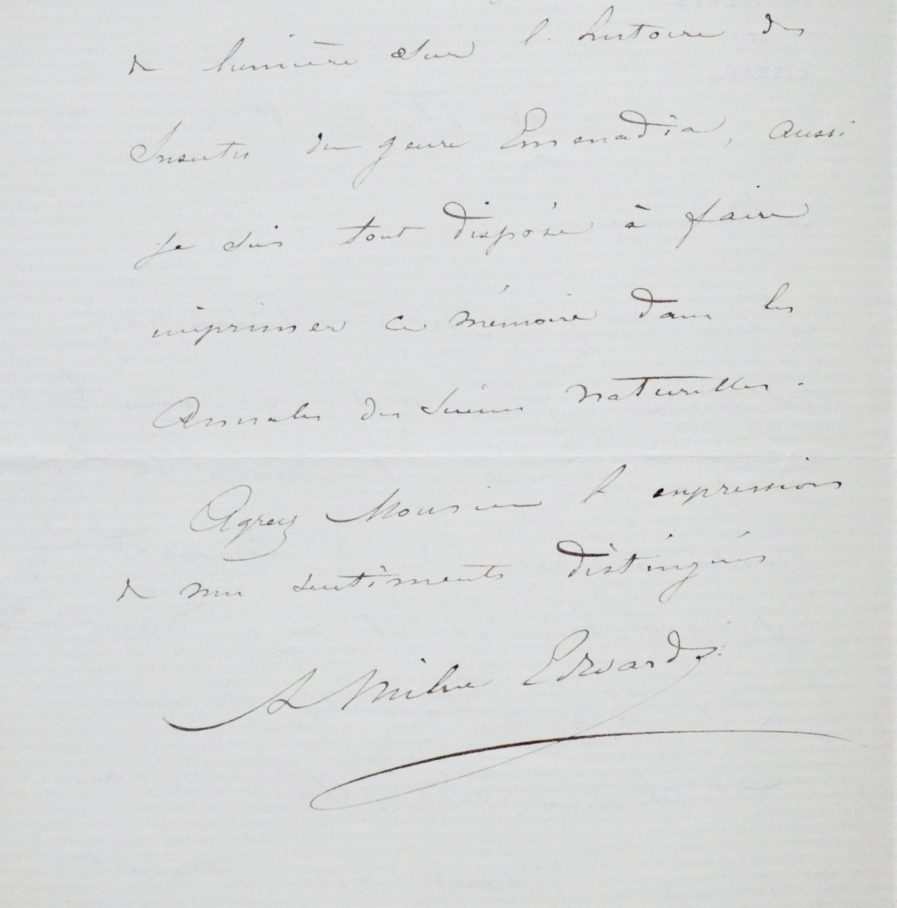 de lumière sur l'histoire des
Insectes du genre Emenadia, aussi
je suis tout disposé à faire
imprimer ce mémoire dans les
Annales des Sciences naturelles.
Agreez Monsieur l'expression
de mes sentiments distingués
A Milne Edwards